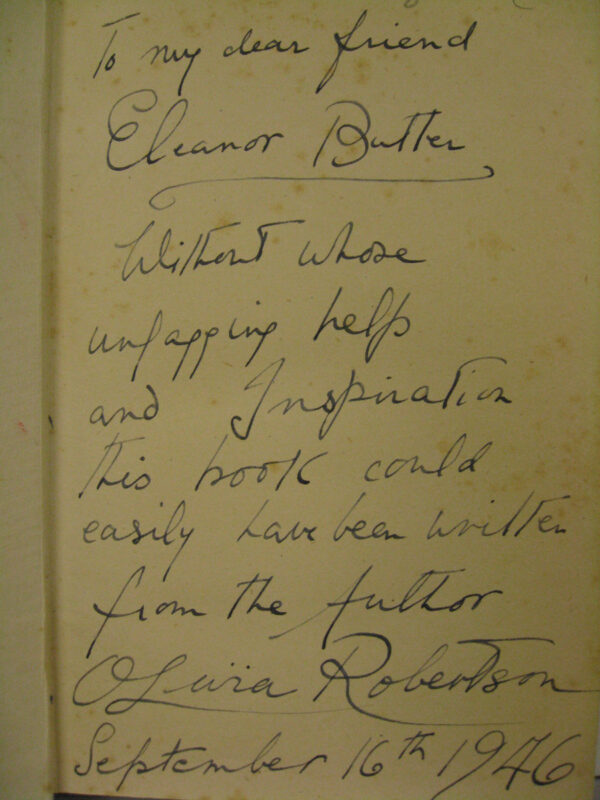 To my dear friend
Eleanor Butler
Without whose
unflagging help
and Inspiration
this book could
easily have been written
from the Author
Olivia Robertson
September 16th 1946